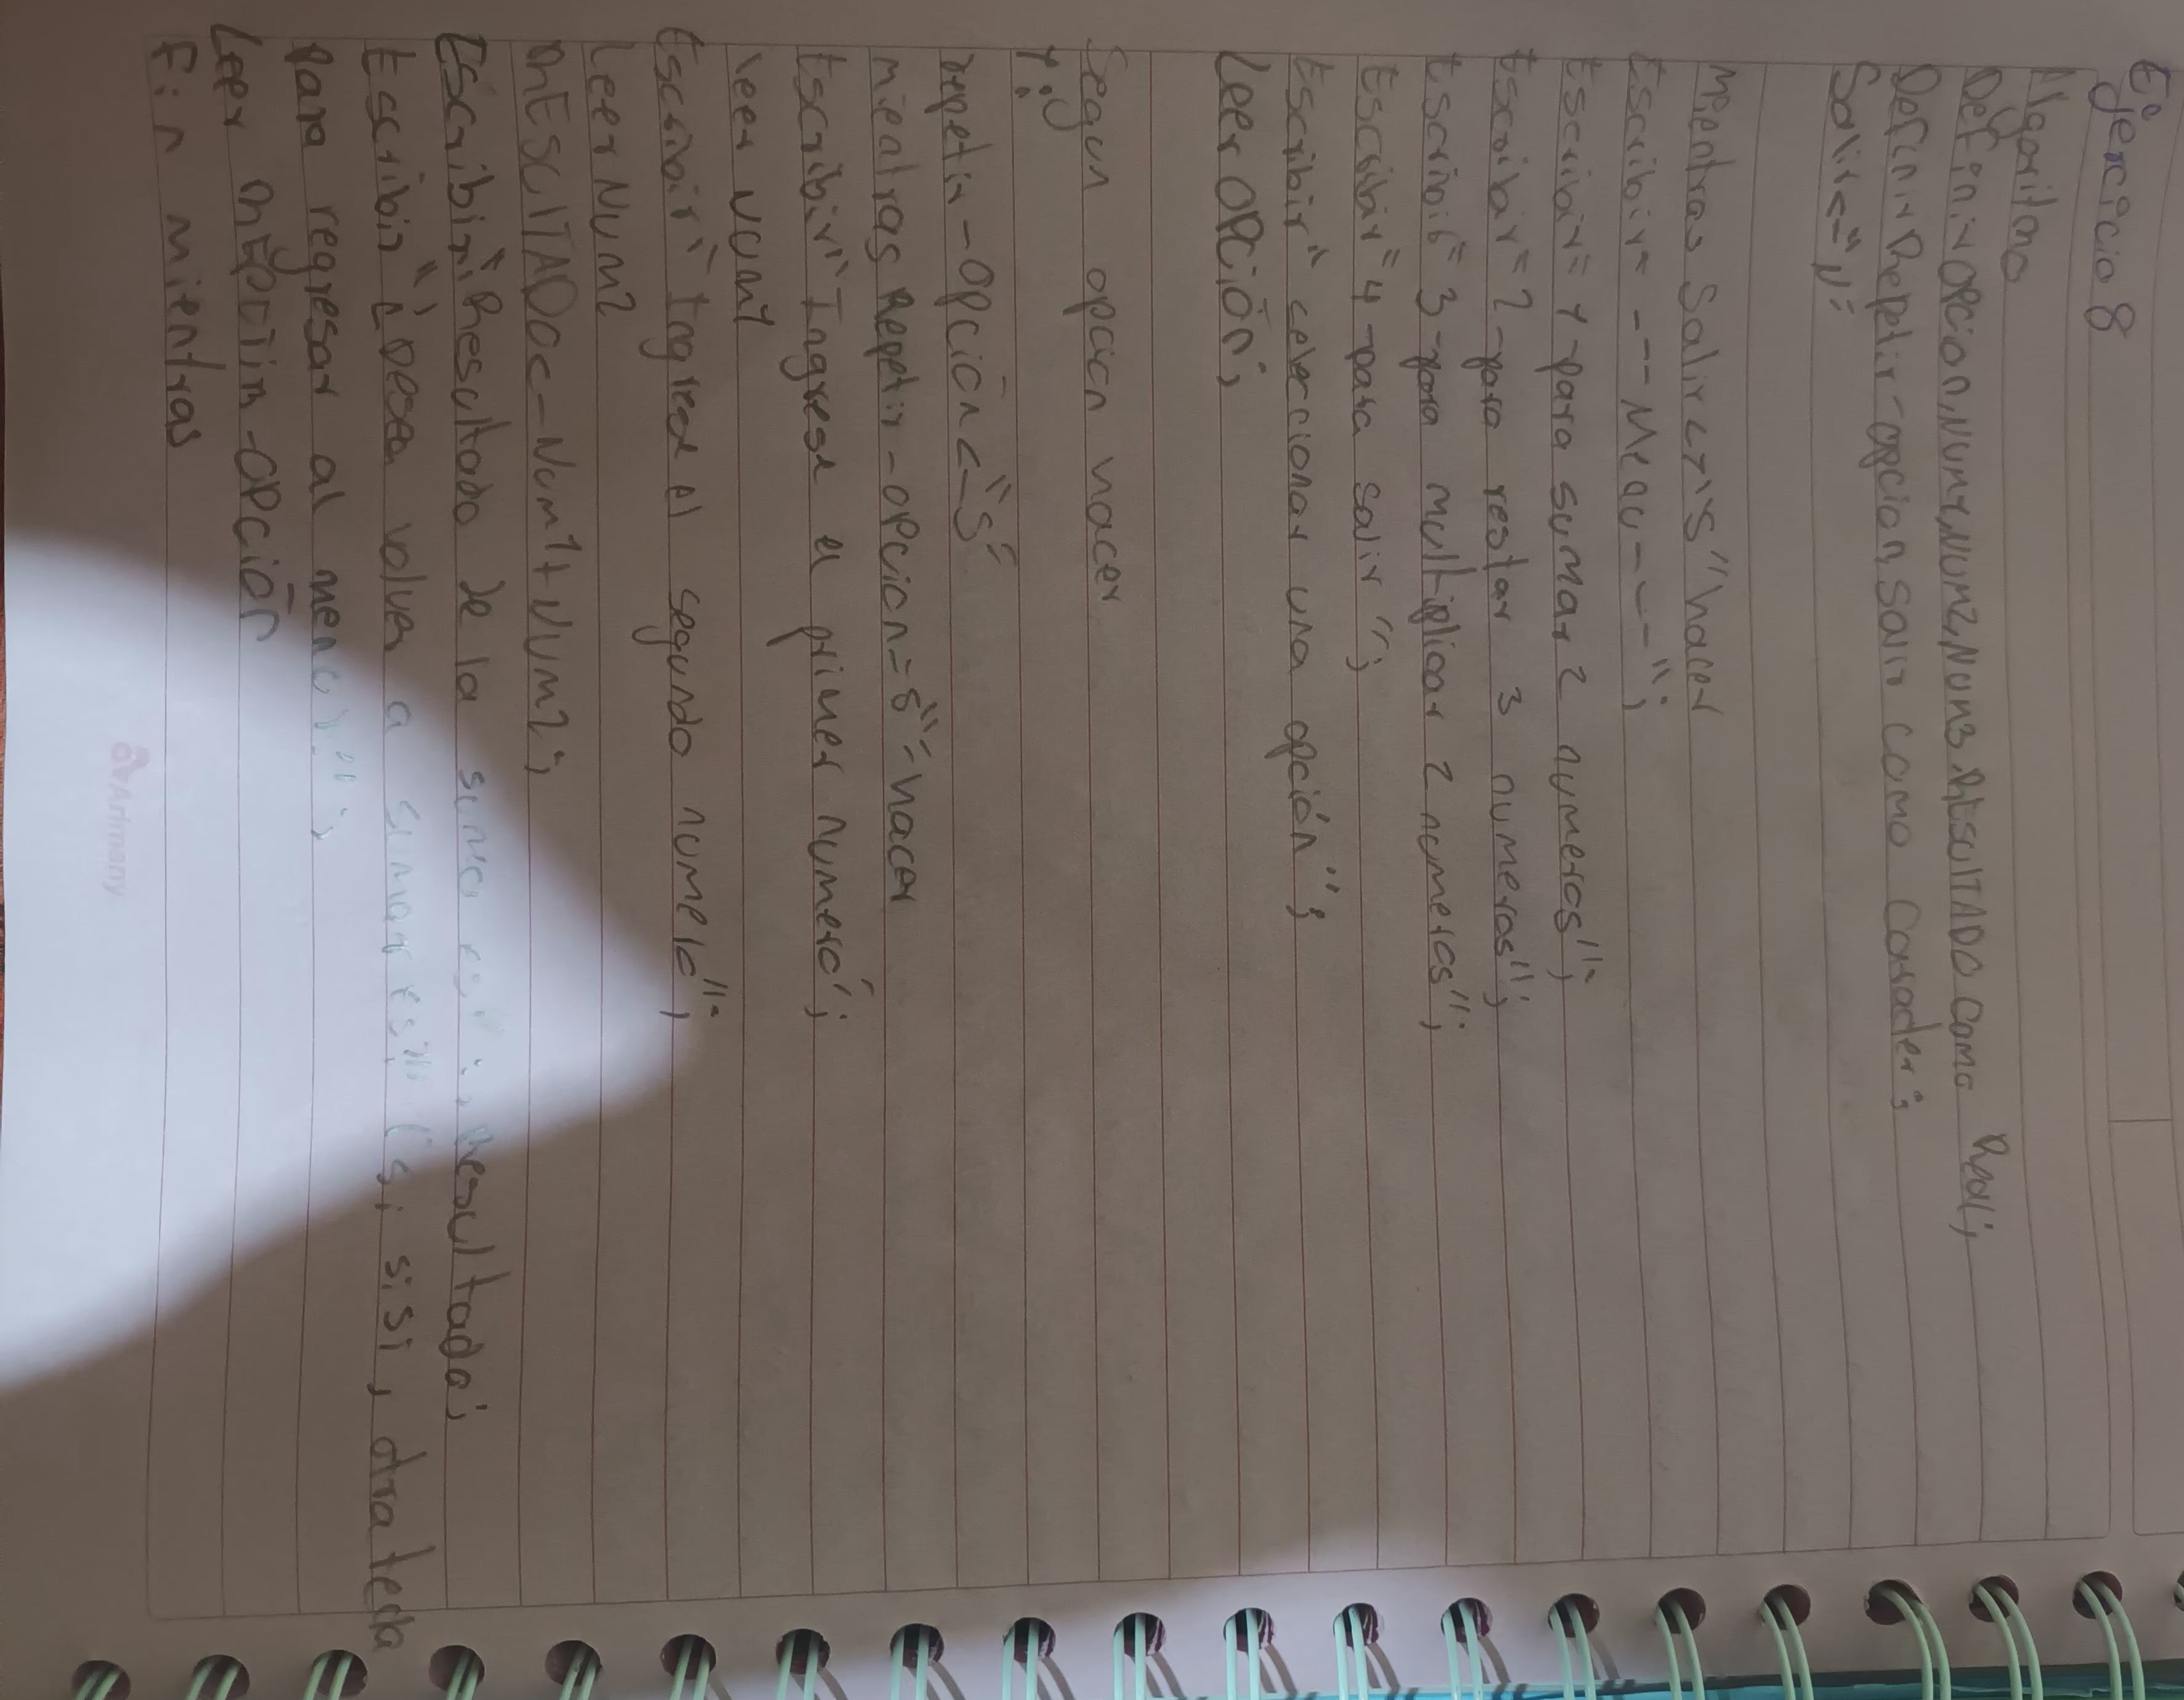 Ejercicio 8
Algoritmo
Definir OPCion, Num1, Num2, Num3, RESULTADO como Real;
Definir Repetir-opcion, Salir como Caracter;
Salir <- "N";
Mientras Salir <> "S" hacer
Escribir " --- Menu --- ";
Escribir " 1 - para sumar 2 numeros";
Escribir " 2 - para restar 3 numeros";
Escribir " 3 - para multiplicar 2 numeros";
Escribir " 4 - para salir ";
Escribir " seleccionar una opción ";
Leer OPCión;
Segun opcion hacer
1:
repetir-OPCión <- "S"
mientras Repetir-OPCion = "S" hacer
Escribir "Ingrese el primer numero";
leer NUM1
Escribir "Ingrese el segundo numero";
Leer NUM2
RESULTADO <- Num1 + Num2;
Escribir "Resultado de la suma es:", Resultado;
Escribir "¿Desea volver a sumar (s) si si, otra tecla
para regresar al menu)";
Leer REPETIR-OPCión
Fin mientras
Arimany